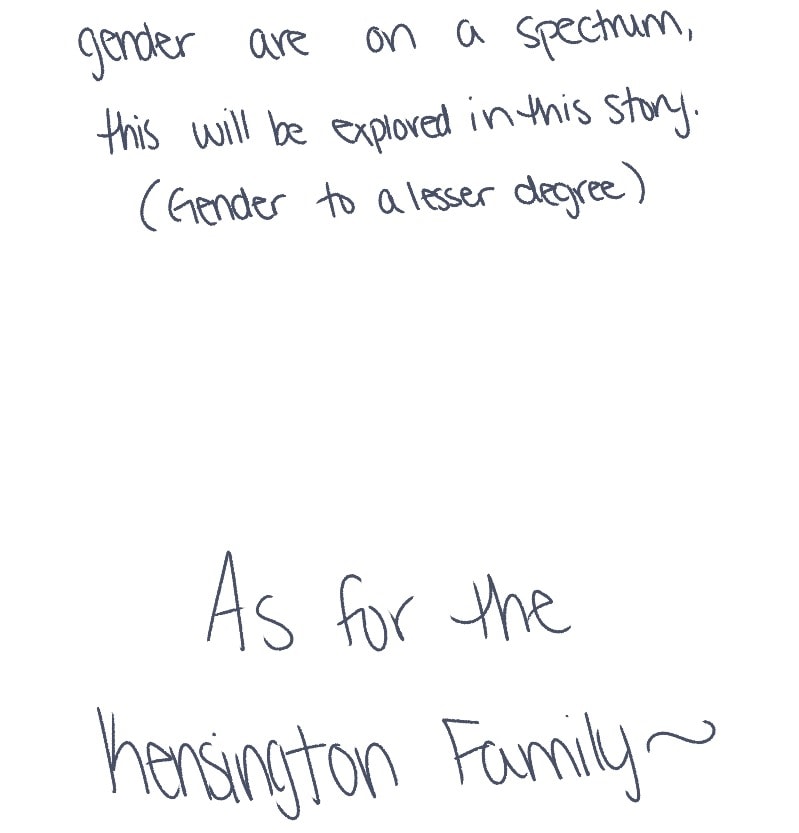 gender are on a spectrum,
this will be explored in this story.
(Gender to a lesser degree)
As for the
Kensington Family~